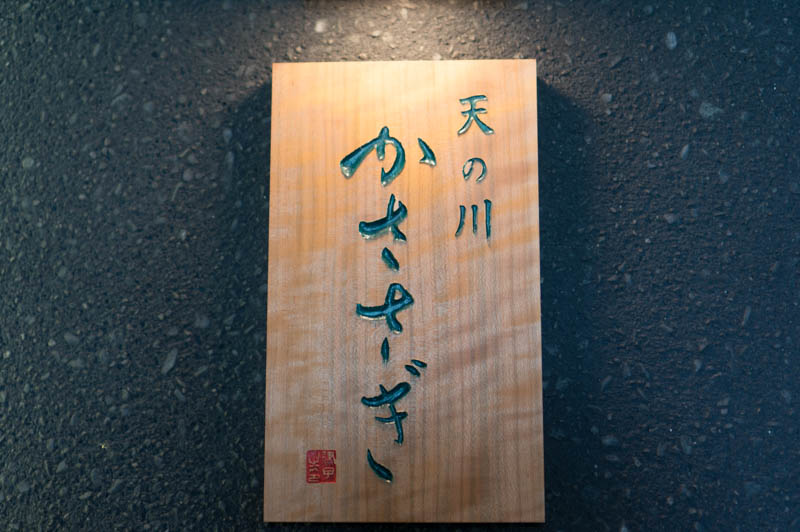 天の川
かささぎ